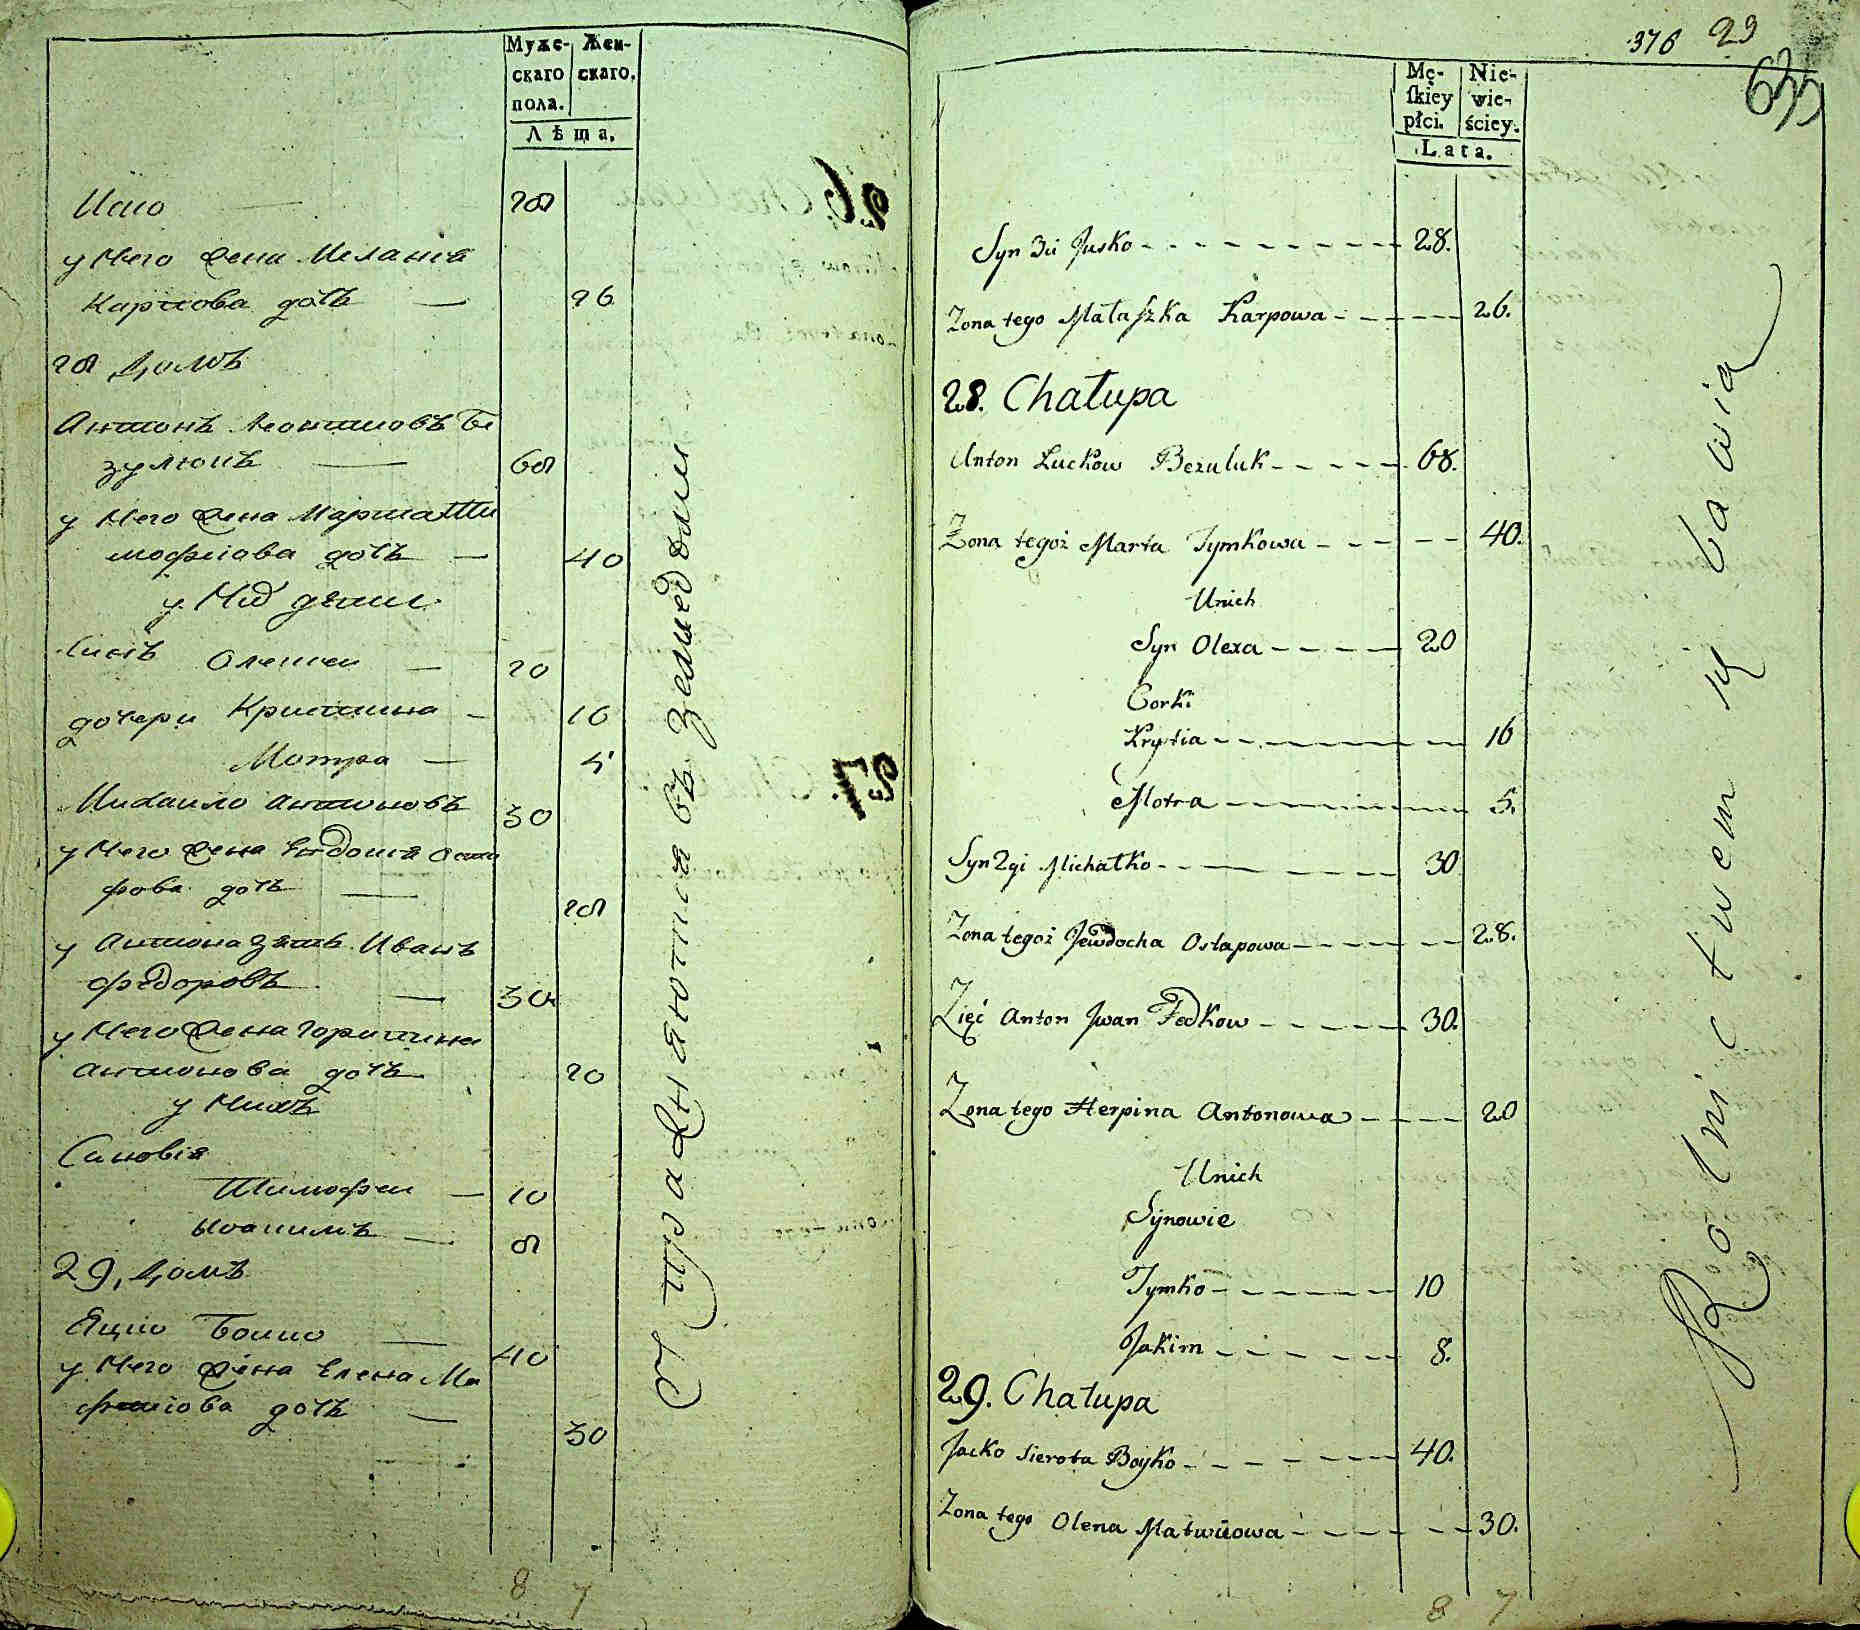 Муже-
скаго
пола.
Жен-
скаго.
Лѣта.
28
у Него жена Мелания
Карпова дочь — 26
28 Домъ
Антонъ Леонтиовъ Бе
зулюкъ — 68
у Него жена Марта Ти
мофиова дочь — 40
у Них дети
Синъ Олексеи — 20
дочери Кристина — 16
Мотра — 5
Михаило Антоновъ 30
у Него жена Евдокия Оста
фова дочь — 28
у Антона зять Иванъ
Федоровъ — 30
у Него жена Горпина
Антонова дочь 20
у Нихъ
Синовія
Тимофеи — 10
Иоакимъ — 8
29, Домъ
Яцко Бойко — 40
у Него жена Елена Ма
фтиова дочь — 30
8 7
Упражняются въ земледелии
376 29
635
Mę-
skiey
płci.
Nie-
wie-
ściey.
Lata.
Syn 3ci Jusko 28.
Zona tego Małaszka Karpowa 26.
28. Chałupa
Anton Luckow Bezuluk 68.
Zona tegoż Marta Tymkowa 40.
Unich
Syn Olexa 20
Corki
Krystia 16
Motra 5.
Syn 2gi Michałko 30
Zona tegoż Jewdocha Ostapowa 28.
Zięć Anton Jwan Fedkow 30.
Zona tego Herpina Antonowa 20
Unich
Synowie
Tymko 10
Jakim 8.
29. Chałupa
Jacko Sierota Boyko 40.
Zona tego Olena Matwiiowa 30.
8 7
Rolnictwem się bawią